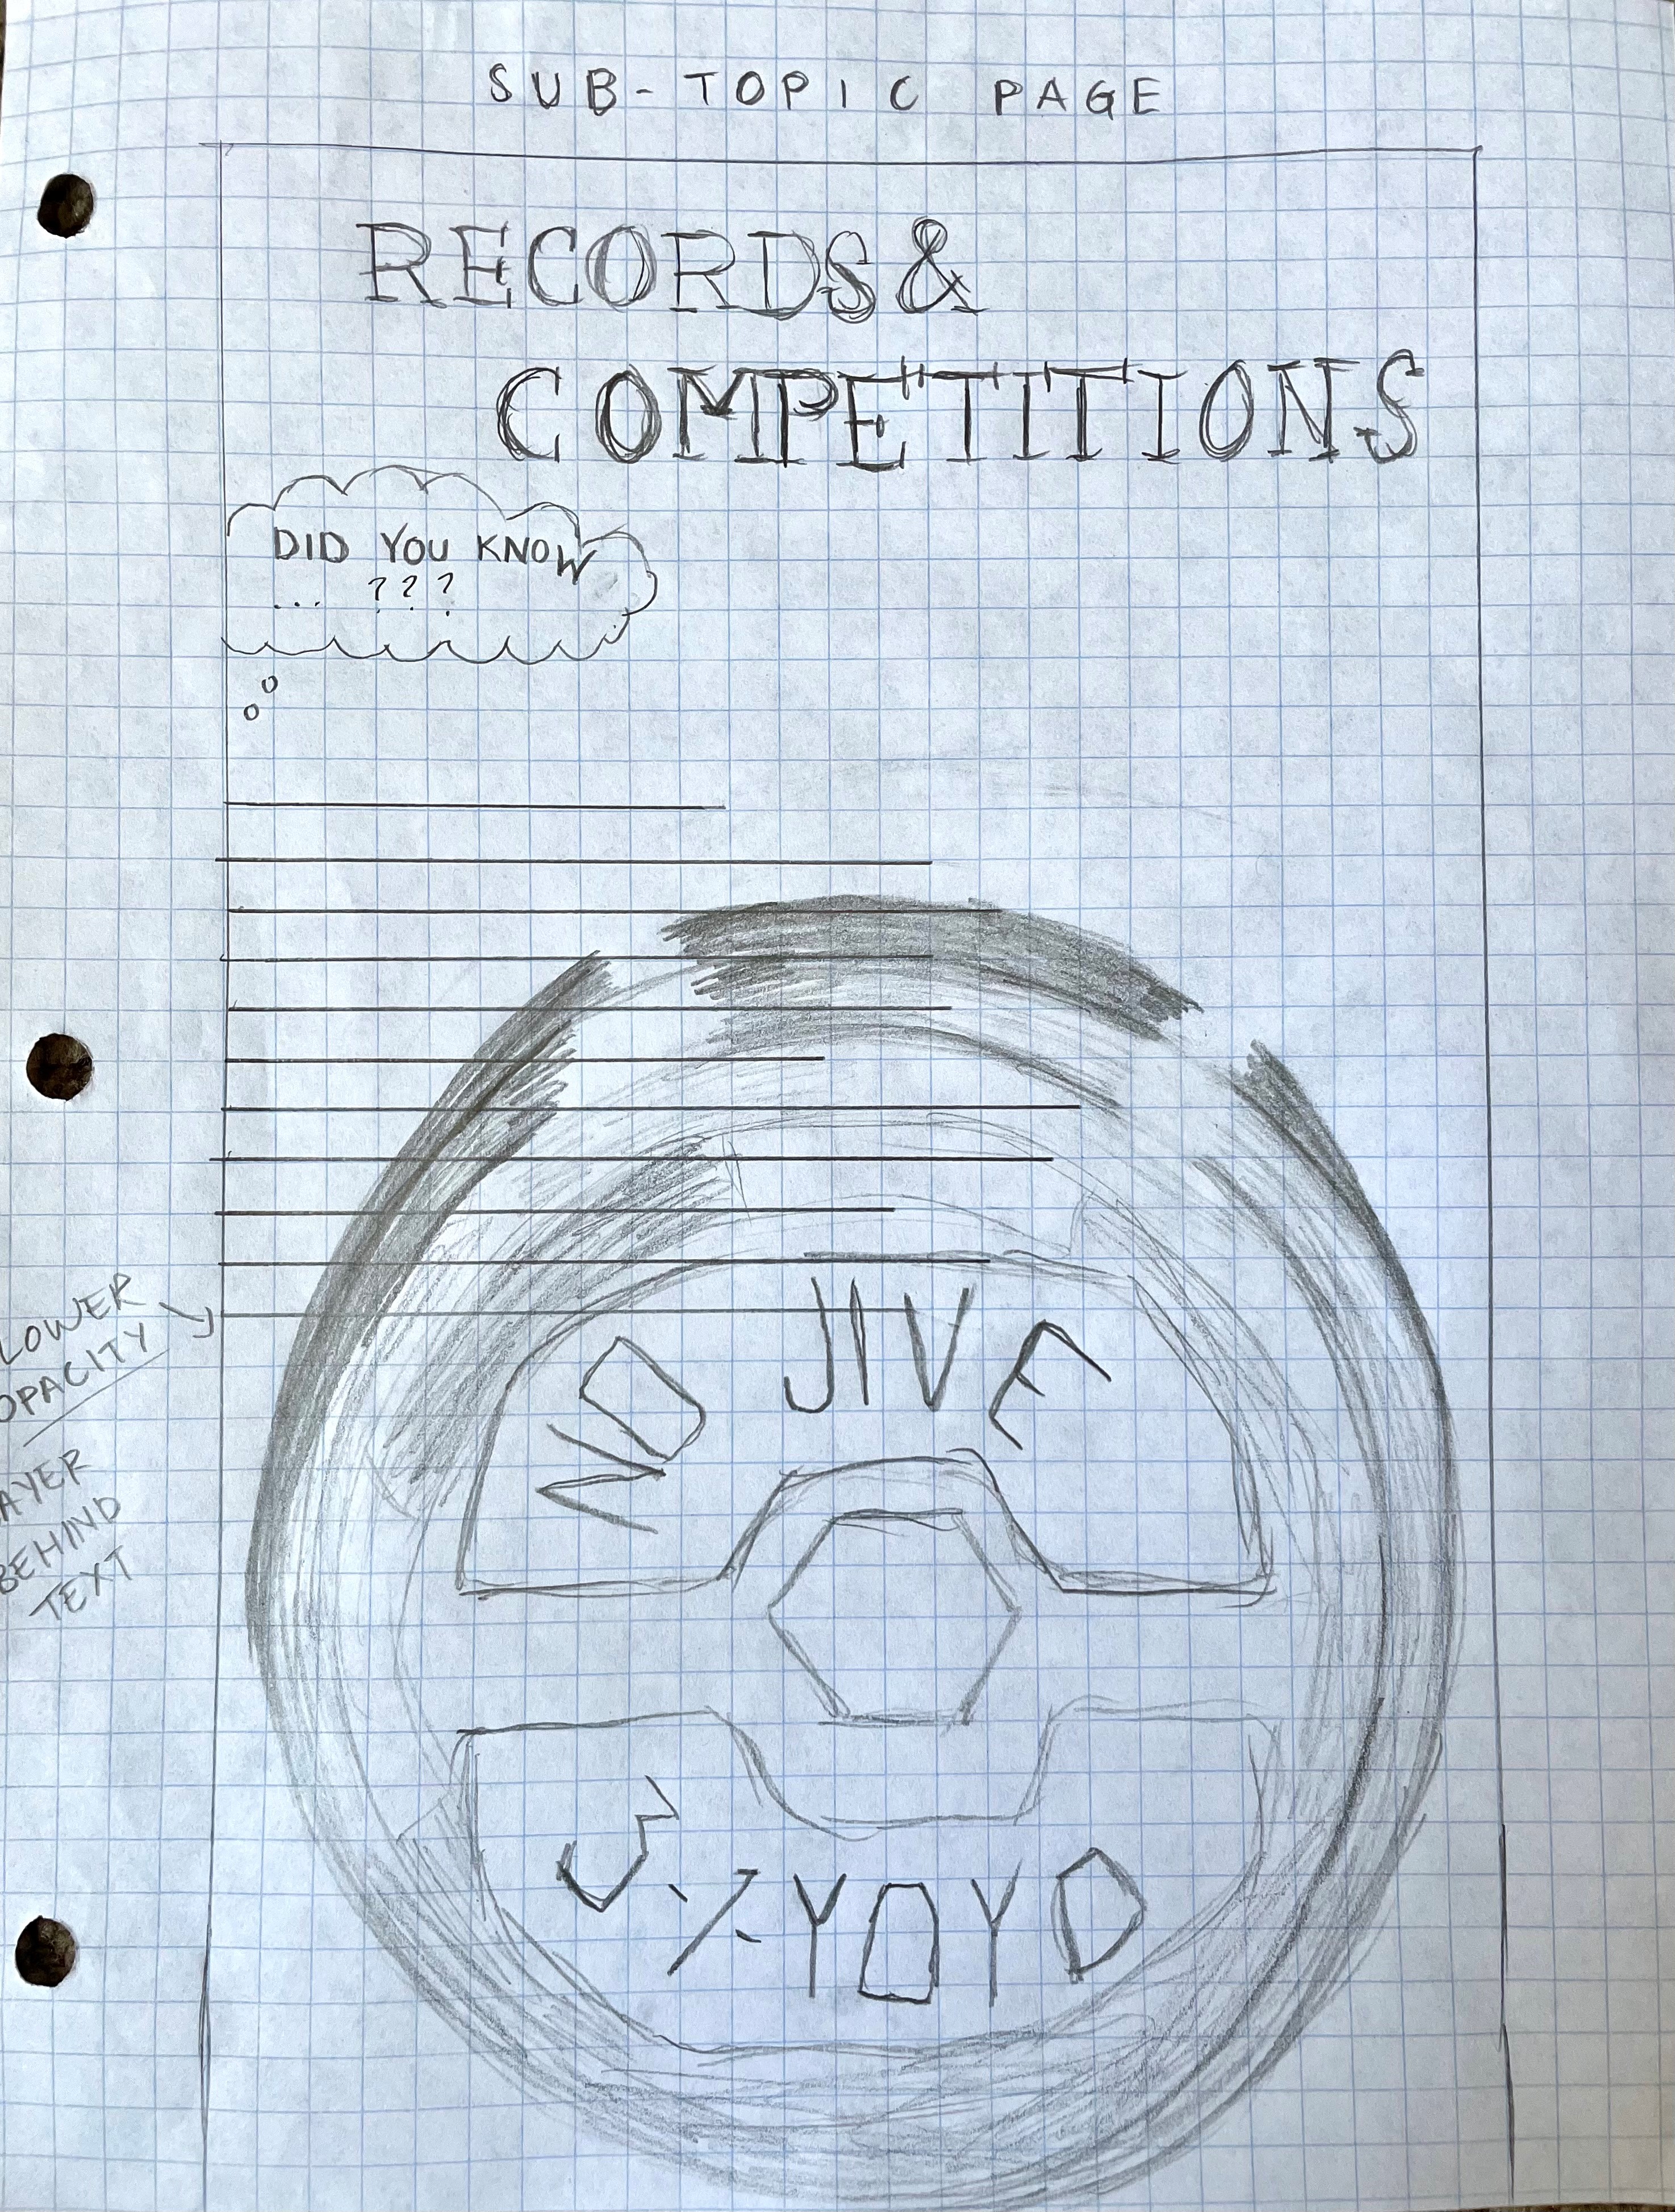 SUB-TOPIC PAGE
RECORDS &
COMPETITIONS
DID YOU KNOW
... ???
LOWER
OPACITY
AYER
BEHIND
TEXT
NO JIVE
3 YOYO